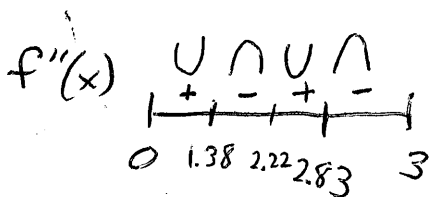 f''(x) ∪ ∩ ∪ ∩
+ - + -
0 1.38 2.22 2.83 3